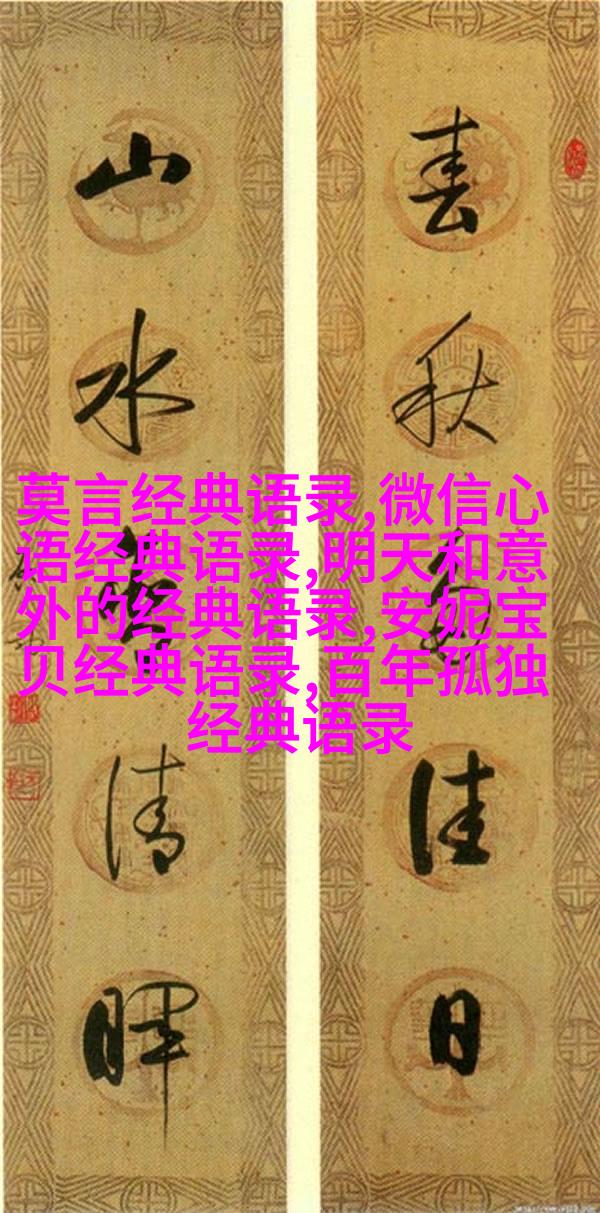 春秋多佳日
山水有清晖
莫言经典语录,微信心
语经典语录,明天和意
外的经典语录,安妮宝
贝经典语录,百年孤独
经典语录